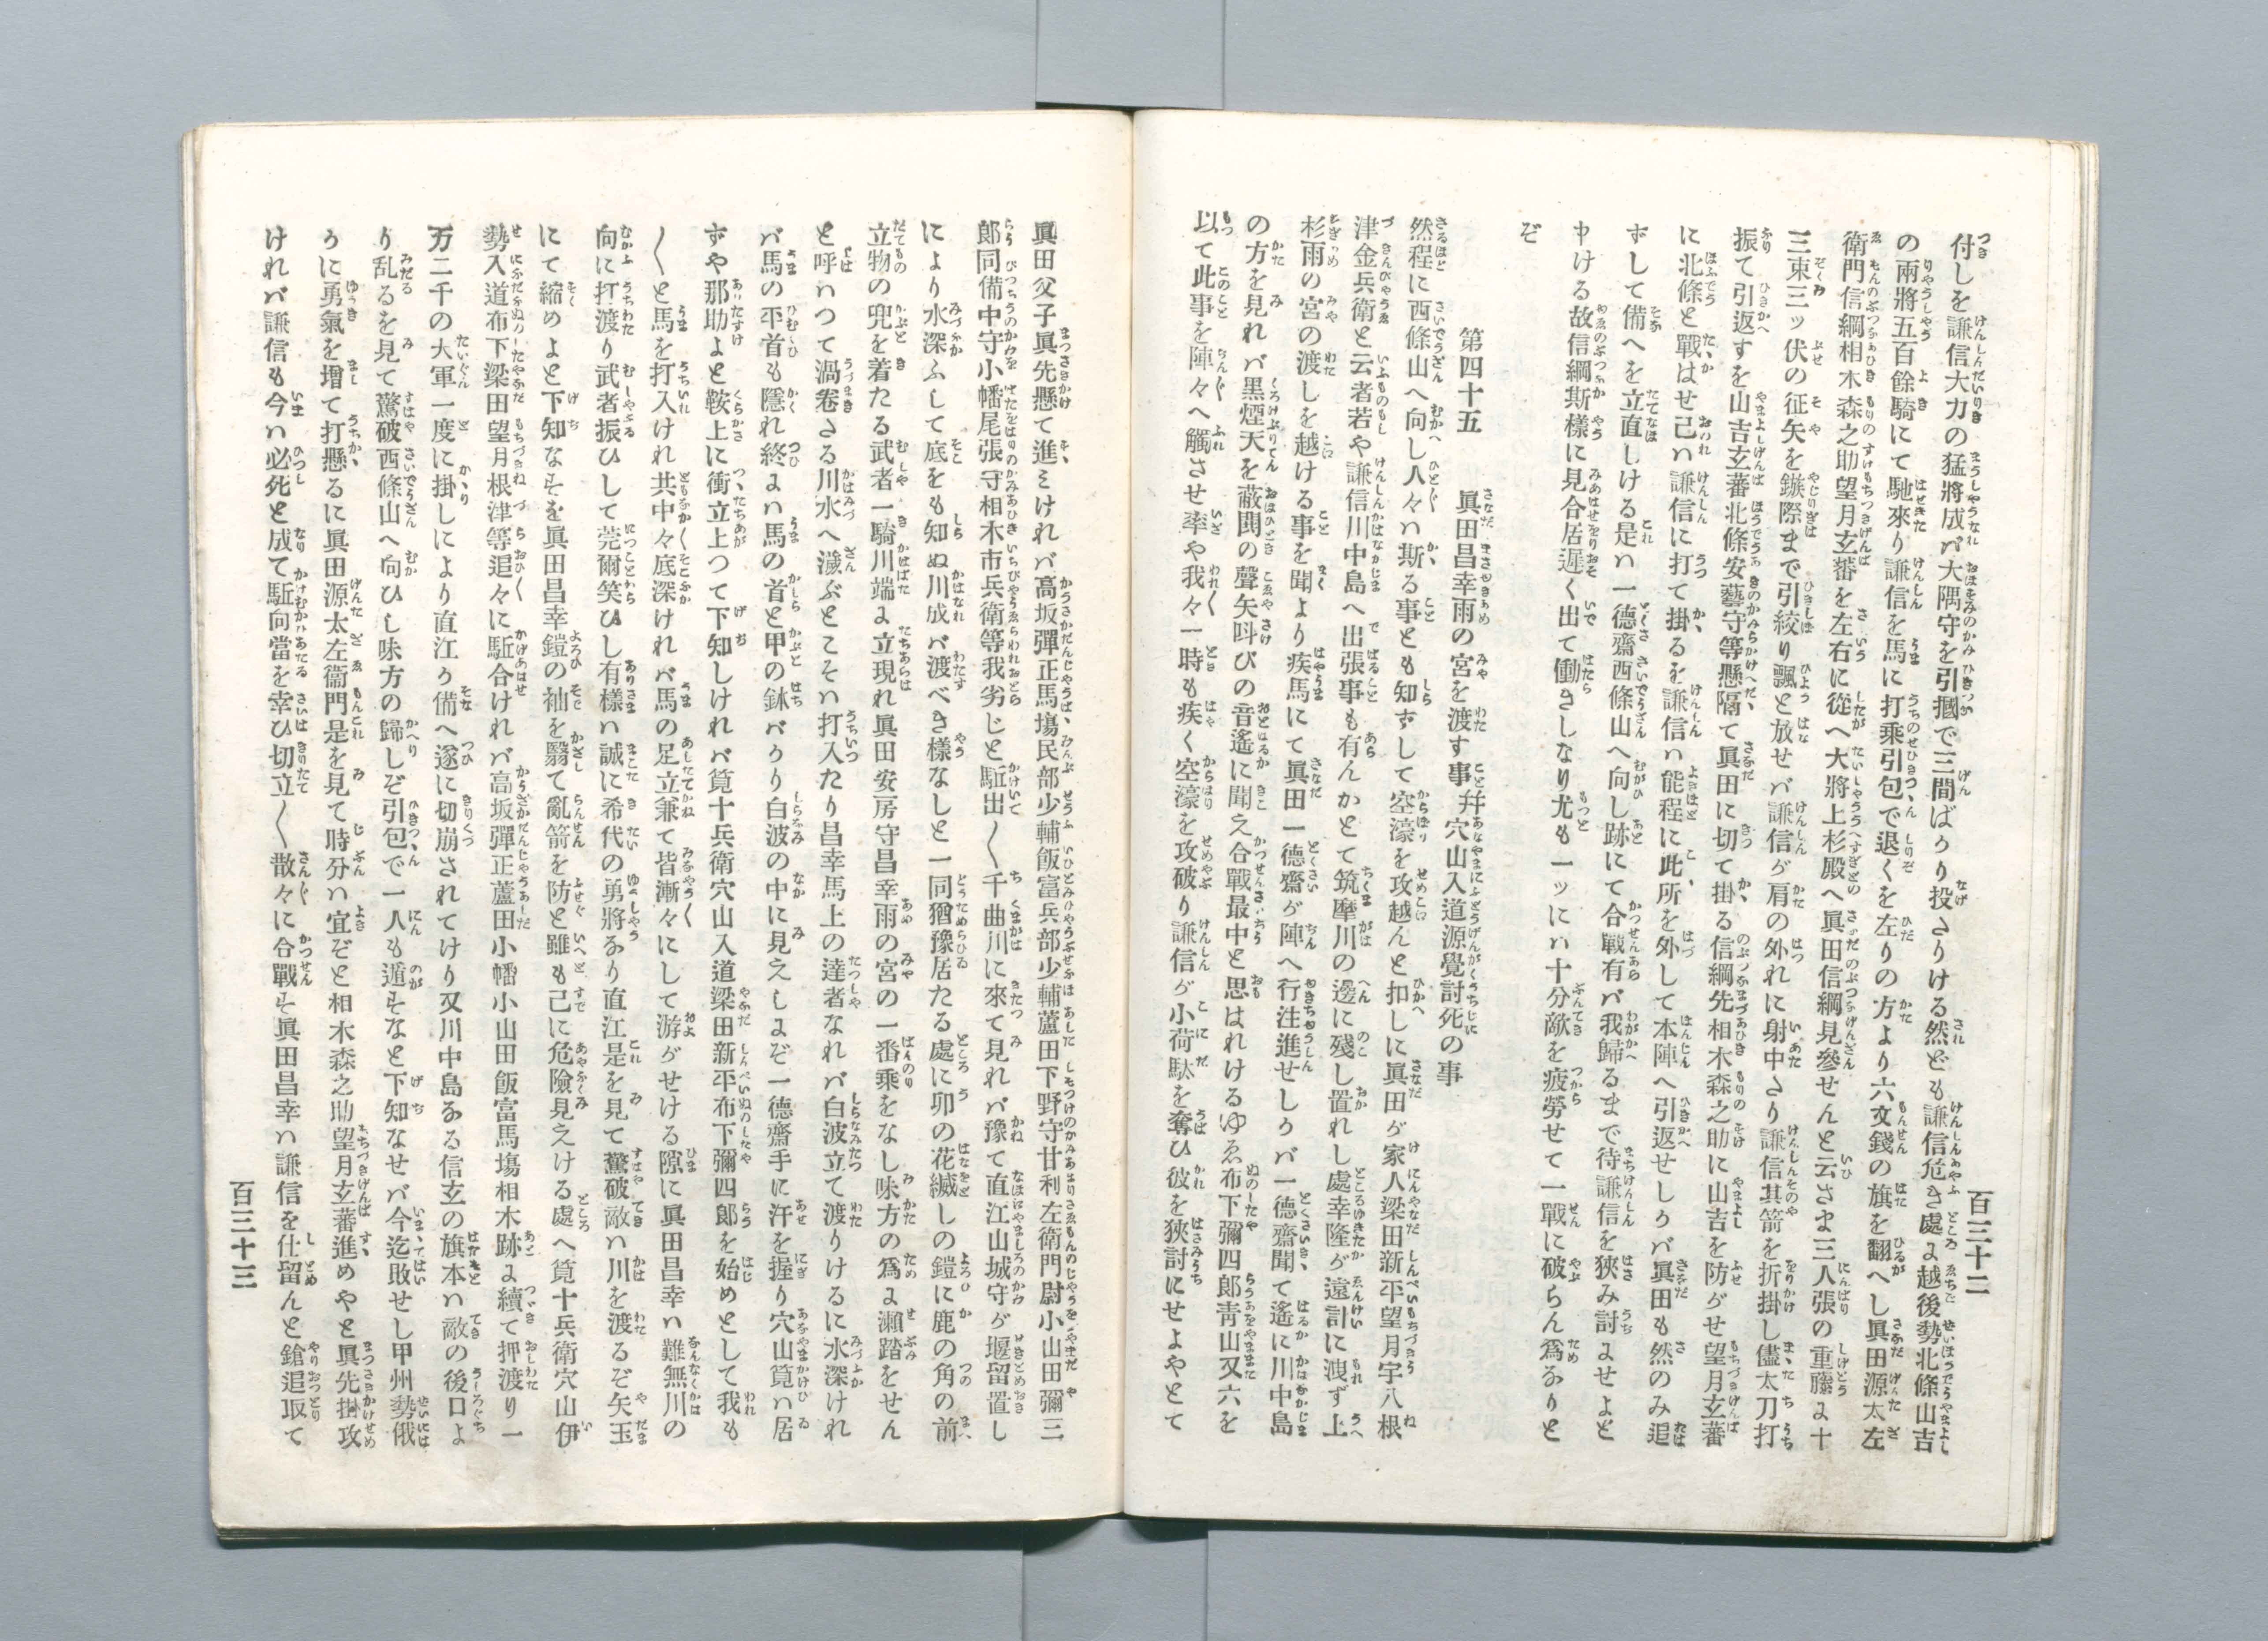 百三十二
付しを謙信大力の猛將成バ大隅守を引摑で三間ばかり投さりける然ども謙信危き處よ越後勢北條山吉
の兩將五百餘騎にて馳來り謙信を馬に打乘引包で退くを左りの方より六文錢の旗を翻へし眞田源太左
衛門信綱相木森之助望月玄蕃を左右に從へ大將上杉殿へ眞田信綱見參せんと云さま三人張の重藤よ十
三束三ッ伏の征矢を鏃際まで引絞り飄と放せバ謙信が肩の外れに射中さり謙信其箭を折掛し儘太刀打
振て引返すを山吉玄蕃北條安藝守等懸隔て眞田に切て掛る信綱先相木森之助に山吉を防がせ望月玄蕃
に北條と戰はせ己ハ謙信に打て掛るを謙信ハ能程に此所を外して本陣へ引返せしかバ眞田も然のみ追
ずして備へを立直しける是ハ一德齋西條山へ向し跡にて合戰有バ我歸るまで待謙信を狹み討よせよと
申ける故信綱斯樣に見合居遲く出て働きしなり尤も一ッにハ十分敵を疲勞せて一戰に破らん爲なりと
ぞ
第四十五　眞田昌幸雨の宮を渡す事幷穴山入道源覺討死の事
然程に西條山へ向し人々ハ斯る事とも知ずして空濠を攻越んと扣しに眞田が家人梁田新平望月宇八根
津金兵衛と云者若や謙信川中島へ出張事も有んかとて筑摩川の邊に殘し置れし處幸隆が遠計に洩ず上
杉雨の宮の渡しを越ける事を聞より疾馬にて眞田一德齋が陣へ行注進せしかバ一德齋聞て遙に川中島
の方を見れバ黑煙天を蔽鬨の聲矢叫びの音遙に聞え合戰最中と思はれけるゆゑ布下彌四郎靑山又六を
以て此事を陣々へ觸させ率や我々一時も疾く空濠を攻破り謙信が小荷駄を奪ひ彼を狹討にせよやとて
眞田父子眞先懸て進ミけれバ高坂彈正馬塲民部少輔飯富兵部少輔蘆田下野守甘利左衛門尉小山田彌三
郎同備中守小幡尾張守相木市兵衛等我劣じと駈出〱千曲川に來て見れバ豫て直江山城守が堰留置し
により水深ふして底をも知ぬ川成バ渡べき樣なしと一同猶豫居たる處に卯の花縅しの鎧に鹿の角の前
立物の兜を着たる武者一騎川端よ立現れ眞田安房守昌幸雨の宮の一番乘をなし味方の爲よ瀨踏をせん
と呼ハつて渦卷さる川水へ濺ぶとこそハ打入たり昌幸馬上の達者なれバ白波立て渡りけるに水深けれ
バ馬の平首も隱れ終よハ馬の首と甲の鉢バかり白波の中に見えしよぞ一德齋手に汗を握り穴山筧ハ居
ずや那助よと鞍上に衝立上つて下知しけれバ筧十兵衛穴山入道梁田新平布下彌四郎を始めとして我も
〱と馬を打入けれ共中々底深けれバ馬の足立兼て皆漸々にして游がせける隙に眞田昌幸ハ難無川の
向に打渡り武者振ひして莞爾笑ひし有樣ハ誠に希代の勇將なり直江是を見て驚破敵ハ川を渡るぞ矢玉
にて縮めよと下知なすを眞田昌幸鎧の袖を翳て亂箭を防と雖も己に危險見えける處へ筧十兵衛穴山伊
勢入道布下梁田望月根津等追々に駈合けれバ高坂彈正蘆田小幡小山田飯富馬塲相木跡よ續て押渡り一
万二千の大軍一度に掛しにより直江か備へ遂に切崩されてけり又川中島なる信玄の旗本ハ敵の後口よ
り乱るを見て驚破西條山へ向ひし味方の歸しぞ引包で一人も遁すなと下知なせバ今迄敗せし甲州勢俄
かに勇氣を增て打懸るに眞田源太左衞門是を見て時分ハ宜ぞと相木森之助望月玄蕃進めやと眞先掛攻
けれバ謙信も今ハ必死と成て駈向當を幸ひ切立〱散々に合戰す眞田昌幸ハ謙信を仕留んと鎗追取て
百三十三